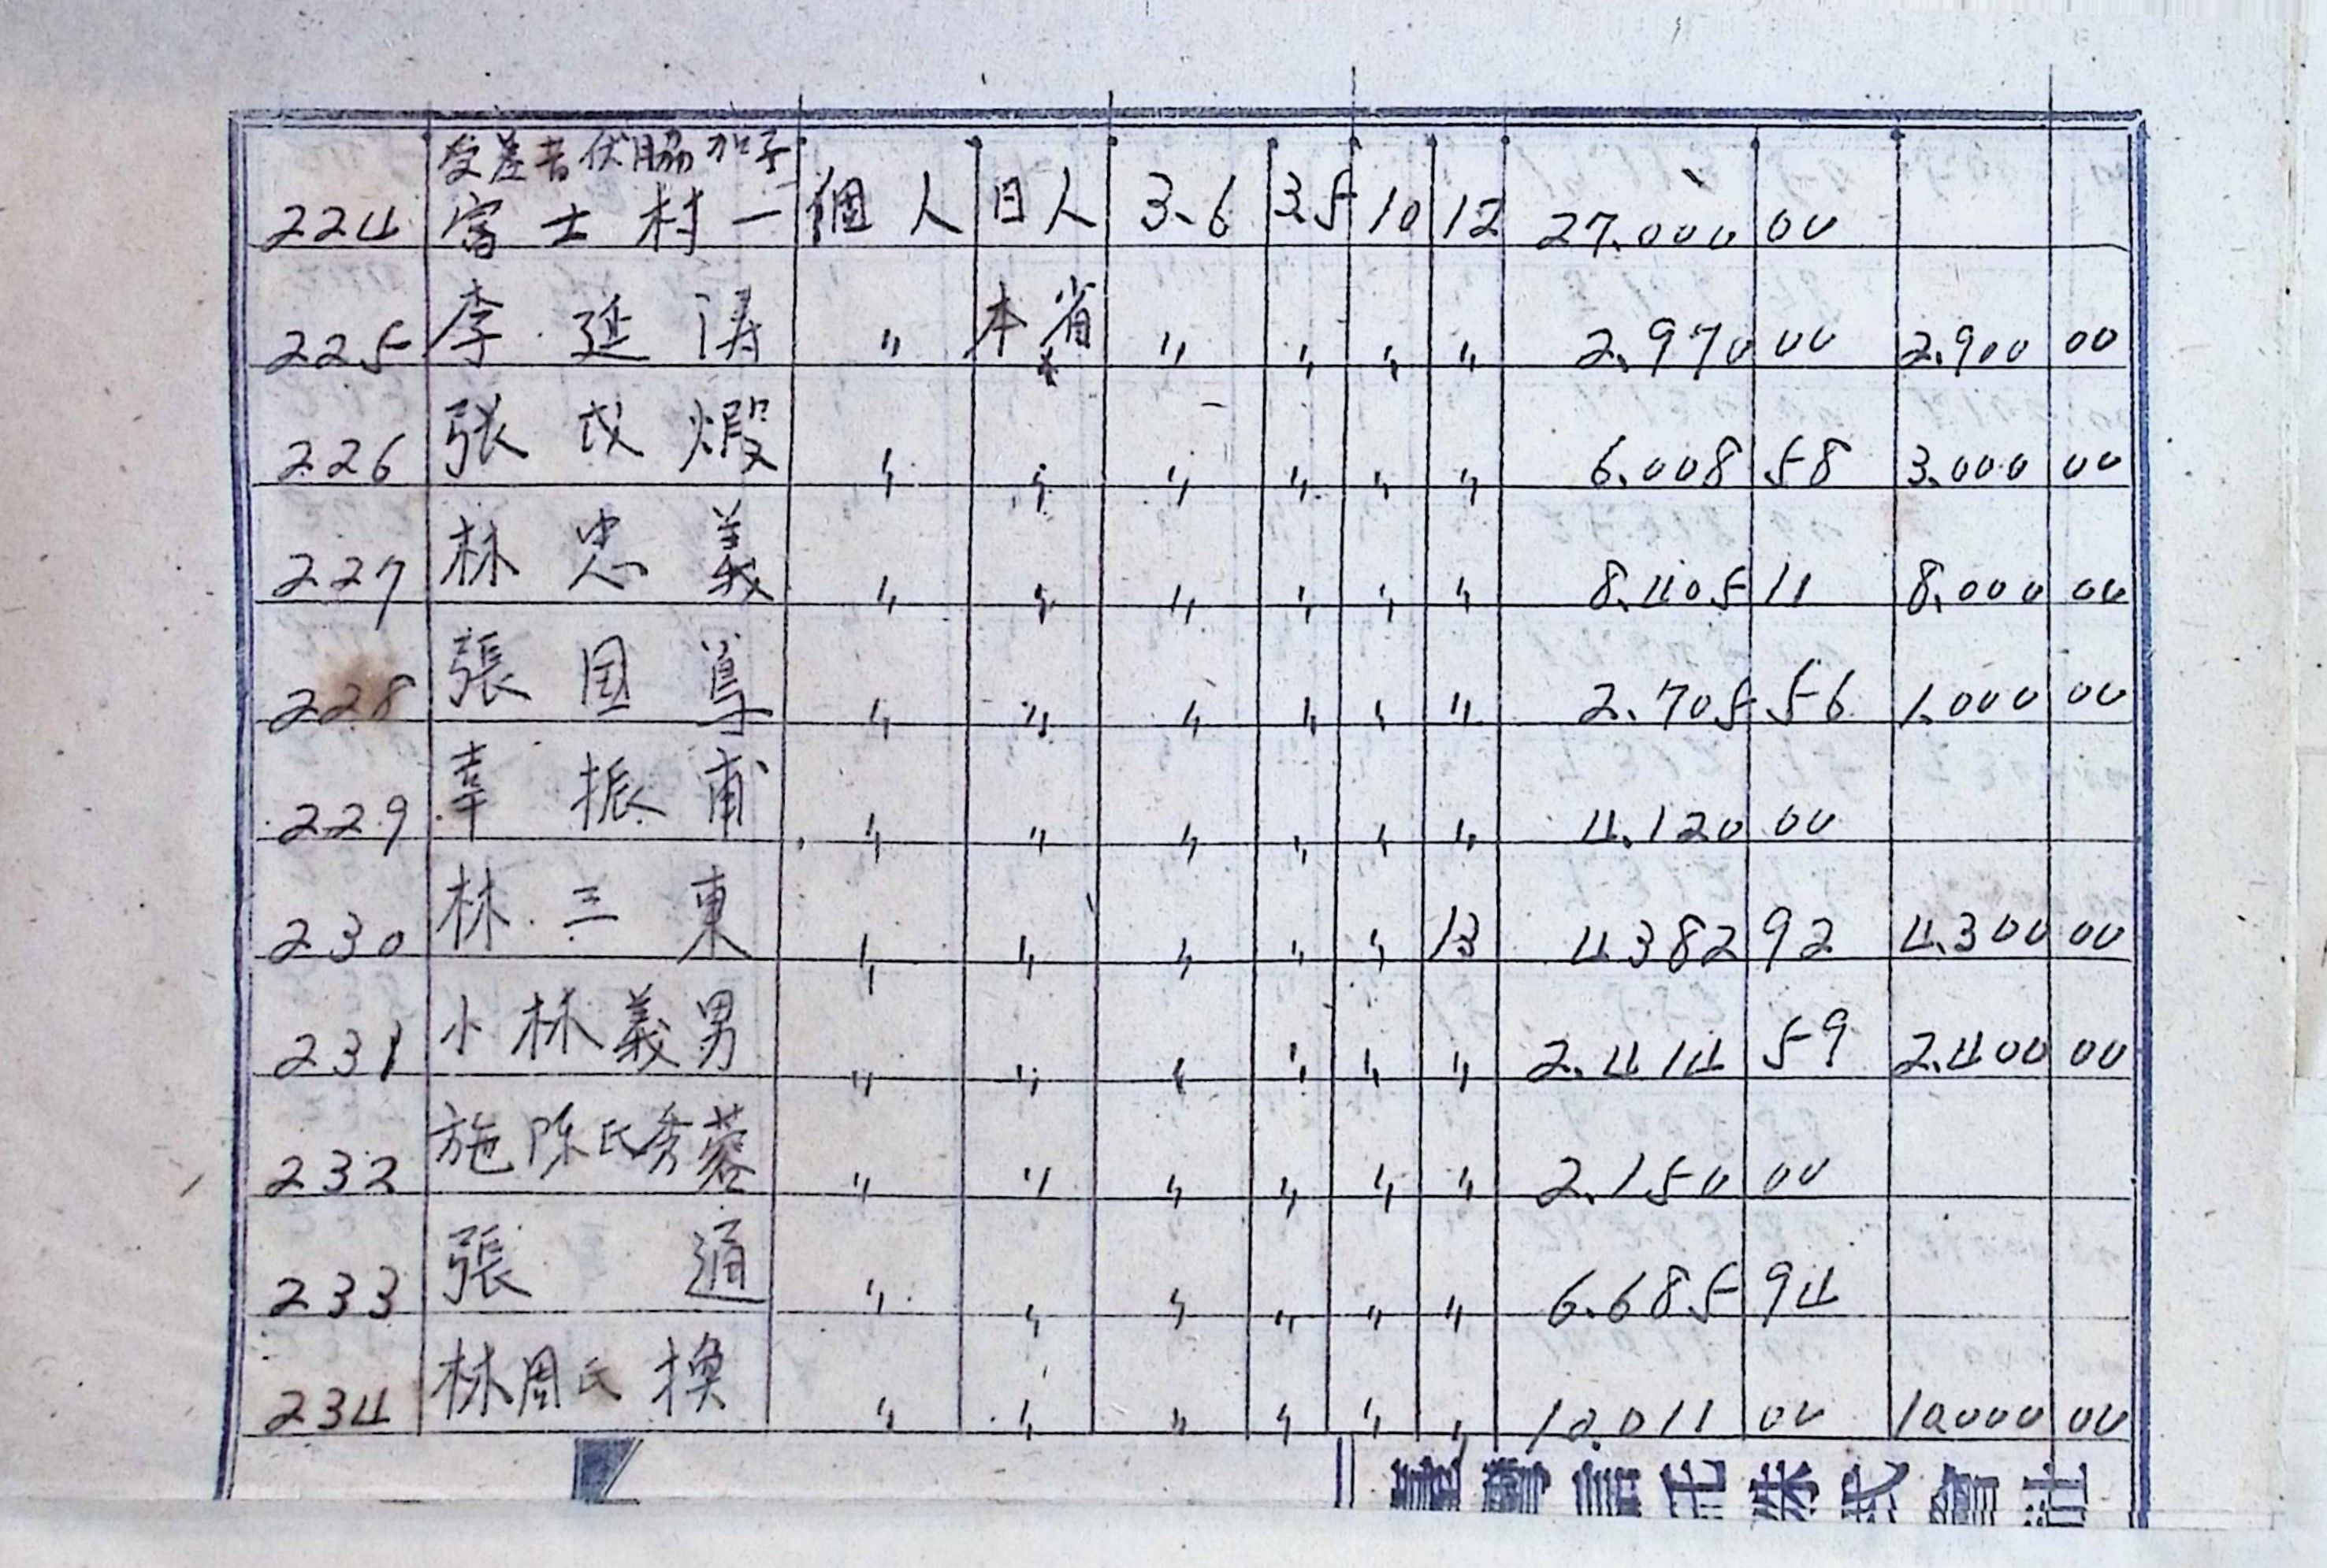 受益者伏脇加子
224 富士村一 個人 日人 3.6 3.5 10 12 27.000 00
225 李延涛 〃 本省人 〃 〃 〃 〃 2.970 00 2.900 00
226 張戊煅 〃 〃 〃 〃 〃 〃 6.008 58 3.000 00
227 林忠義 〃 〃 〃 〃 〃 〃 8.405 11 8.000 00
228 張国 〃 〃 〃 〃 〃 〃 2.705 56 1.000 00
229 辜振甫 〃 〃 〃 〃 〃 〃 4.120 00
230 林三東 〃 〃 〃 〃 〃 13 4382 92 4.300 00
231 小林義男 〃 〃 〃 〃 〃 〃 2.414 59 2.400 00
232 施陳氏秀蓉 〃 〃 〃 〃 〃 〃 2.150 00
233 張通 〃 〃 〃 〃 〃 〃 6.685 94
234 林周氏換 〃 〃 〃 〃 〃 〃 10.011 00 10.000 00
臺灣信託株式會社